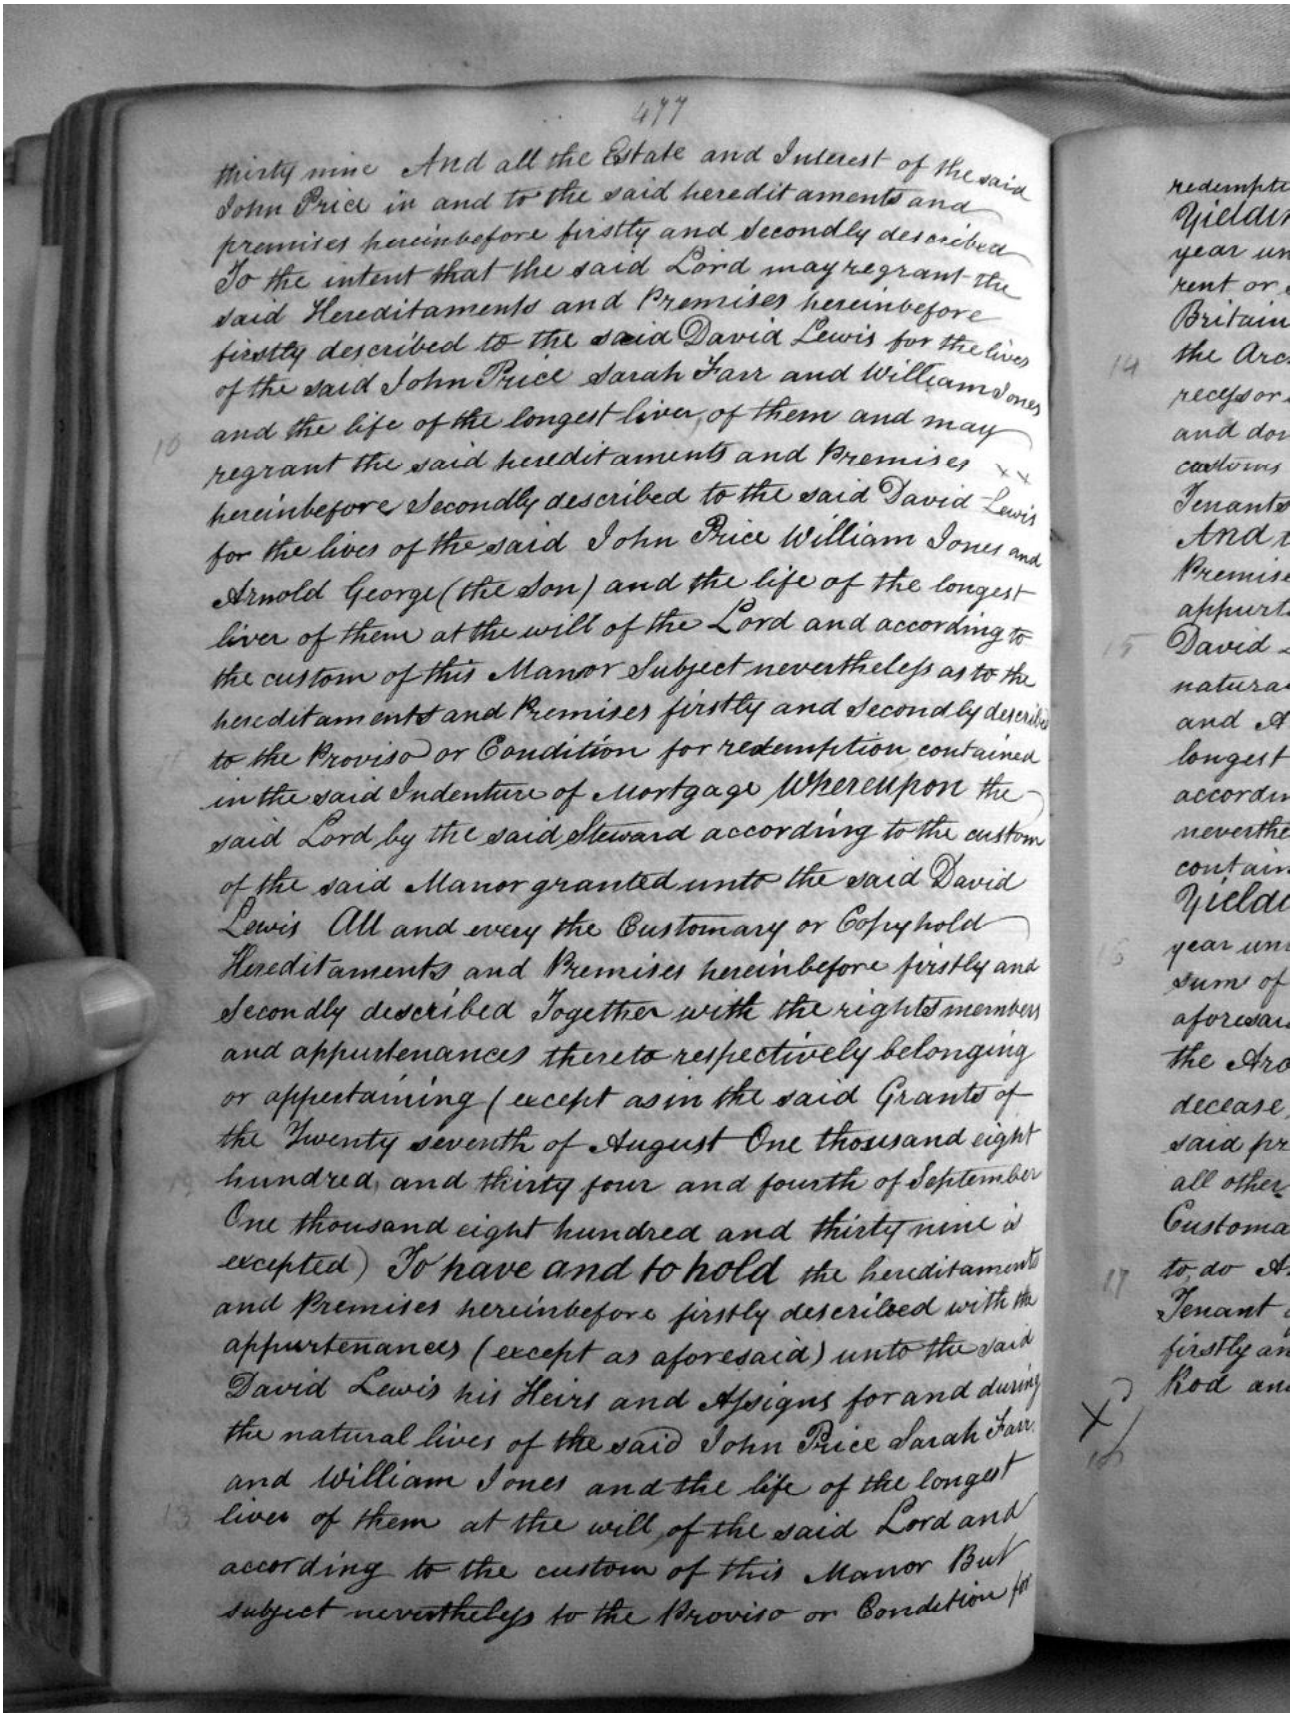 477
thirty nine And all the Estate and Interest of the said
John Price in and to the said hereditaments and
premises hereinbefore firstly and Secondly described
To the intent that the said Lord may regrant the
said Hereditaments and Premises hereinbefore
firstly described to the said David Lewis for the lives
of the said John Price Sarah Farr and William Jones
and the life of the longest liver of them and may
10
regrant the said hereditaments and Premises x x
hereinbefore Secondly described to the said David Lewis
for the lives of the said John Price William Jones and
Arnold George (the Son) and the life of the longest
liver of them at the will of the Lord and according to
the custom of this Manor Subject nevertheless as to the
hereditaments and Premises firstly and Secondly described
to the Proviso or Condition for redemption contained
11
in the said Indenture of Mortgage Whereupon the
said Lord by the said Steward according to the custom
of the said Manor granted unto the said David
Lewis All and every the Customary or Copyhold
Hereditaments and Premises hereinbefore firstly and
Secondly described Together with the rights members
and appurtenances thereto respectively belonging
or appertaining (except as in the said Grants of
the Twenty seventh of August One thousand eight
hundred and thirty four and fourth of September
12
One thousand eight hundred and thirty nine is
excepted) To have and to hold the hereditaments
and Premises hereinbefore firstly described with the
appurtenances (except as aforesaid) unto the said
David Lewis his Heirs and Assigns for and during
the natural lives of the said John Price Sarah Farr
and William Jones and the life of the longest
liver of them at the will of the said Lord and
13
according to the custom of this Manor But
subject nevertheless to the Proviso or Condition for
redempti
Yieldin
year un
rent or
Britain
the Arc
14
and don
customs
Tenants
And t
Premise
appurt
David
15
natura
and A
longest
accordin
neverthe
contain
Yieldi
year un
16
sum of
aforesai
the Aro
decease
said pr
all other
Customa
to do A
17
Tenant
firstly an
Rod and
X
18